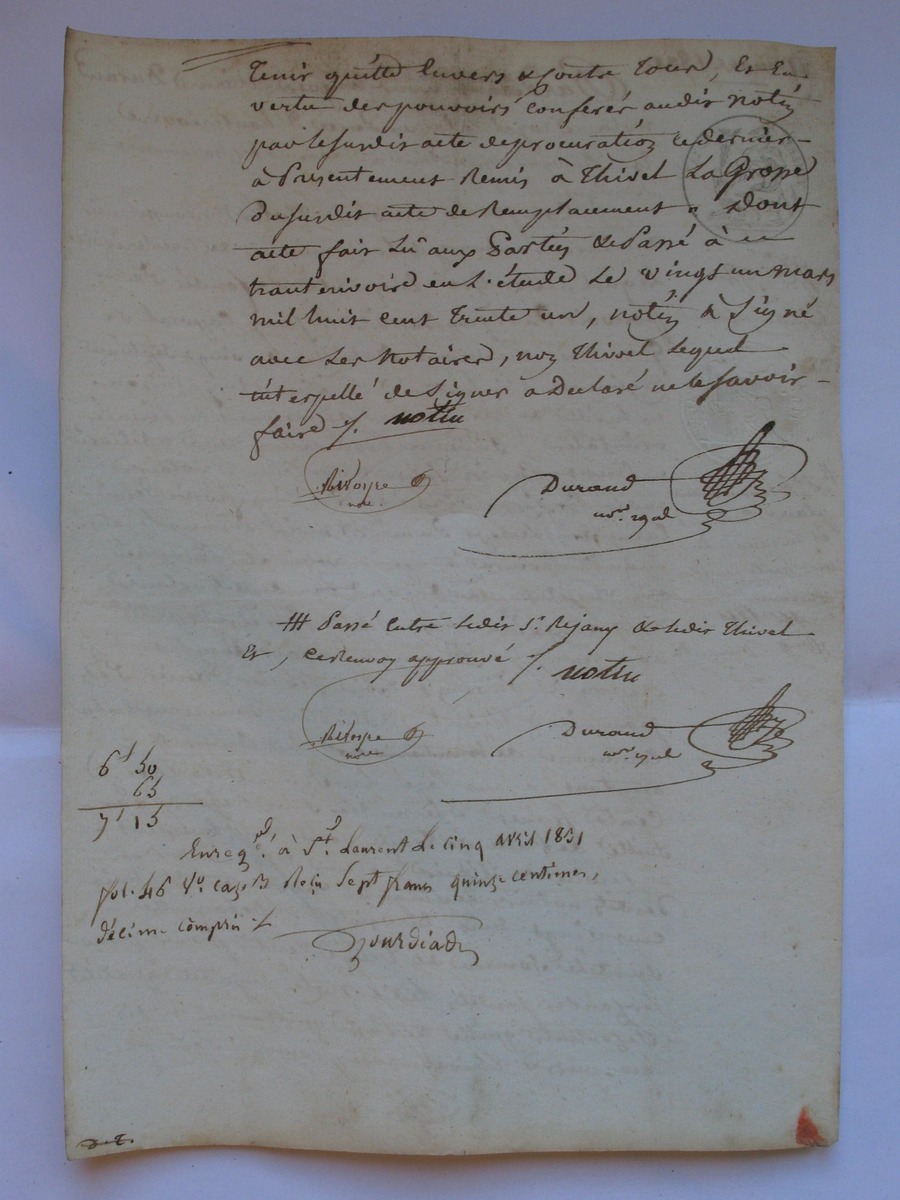 Tenir quitte Envers & Contre Tous, Et En
vertu des pouvoirs Conférés audit Notin
par le susdit acte de procuration ce dernier
a Présentement Remis à Thivel La Grosse
Du susdit acte de Remplacement „ Dont
acte fait Lu aux Parties & Passé à
en L'étude Le vingt un mars
mil huit cent Trente un, Notin a Signé
avec Les Notaires, non Thivel Lequel
interpellé de Signer a Déclaré ne le savoir
faire /. Notin
not.
Durand
### Passé Entre Ledit Sr. Rejany & Ledit Thivel
Et, ce Renvoy approuvé /. Notin
not.
Durand
6f 50
65
7f 15
Enregé. à St. Laurent Le cinq avril 1831
fol. 46 Vo. case Reçu Sept francs quinze centimes,
décime compris /.
D.T.